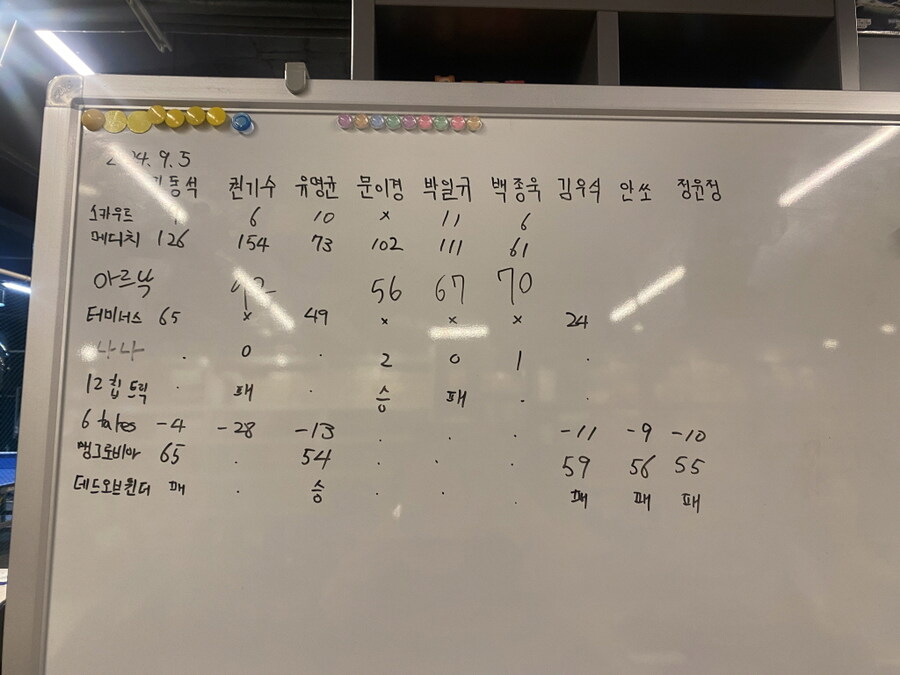 2024.9.5
동석 권기수 유영균 문이경 박일규 백종욱 김우숙 안쏘 정윤정
스카우트 1 6 10 x 11 6
메디치 126 154 73 102 111 61
아르낙 92 56 67 70
터미너스 65 x 49 x x x 24
나나 . 0 . 2 0 1 .
12칩 트릭 . 패 . 승 패 . .
6 tales -4 -28 -13 . . . -11 -9 -10
뱅크로비아 65 . 54 . . . 59 56 55
데드오브윈터 패 . 승 . . . 패 패 패